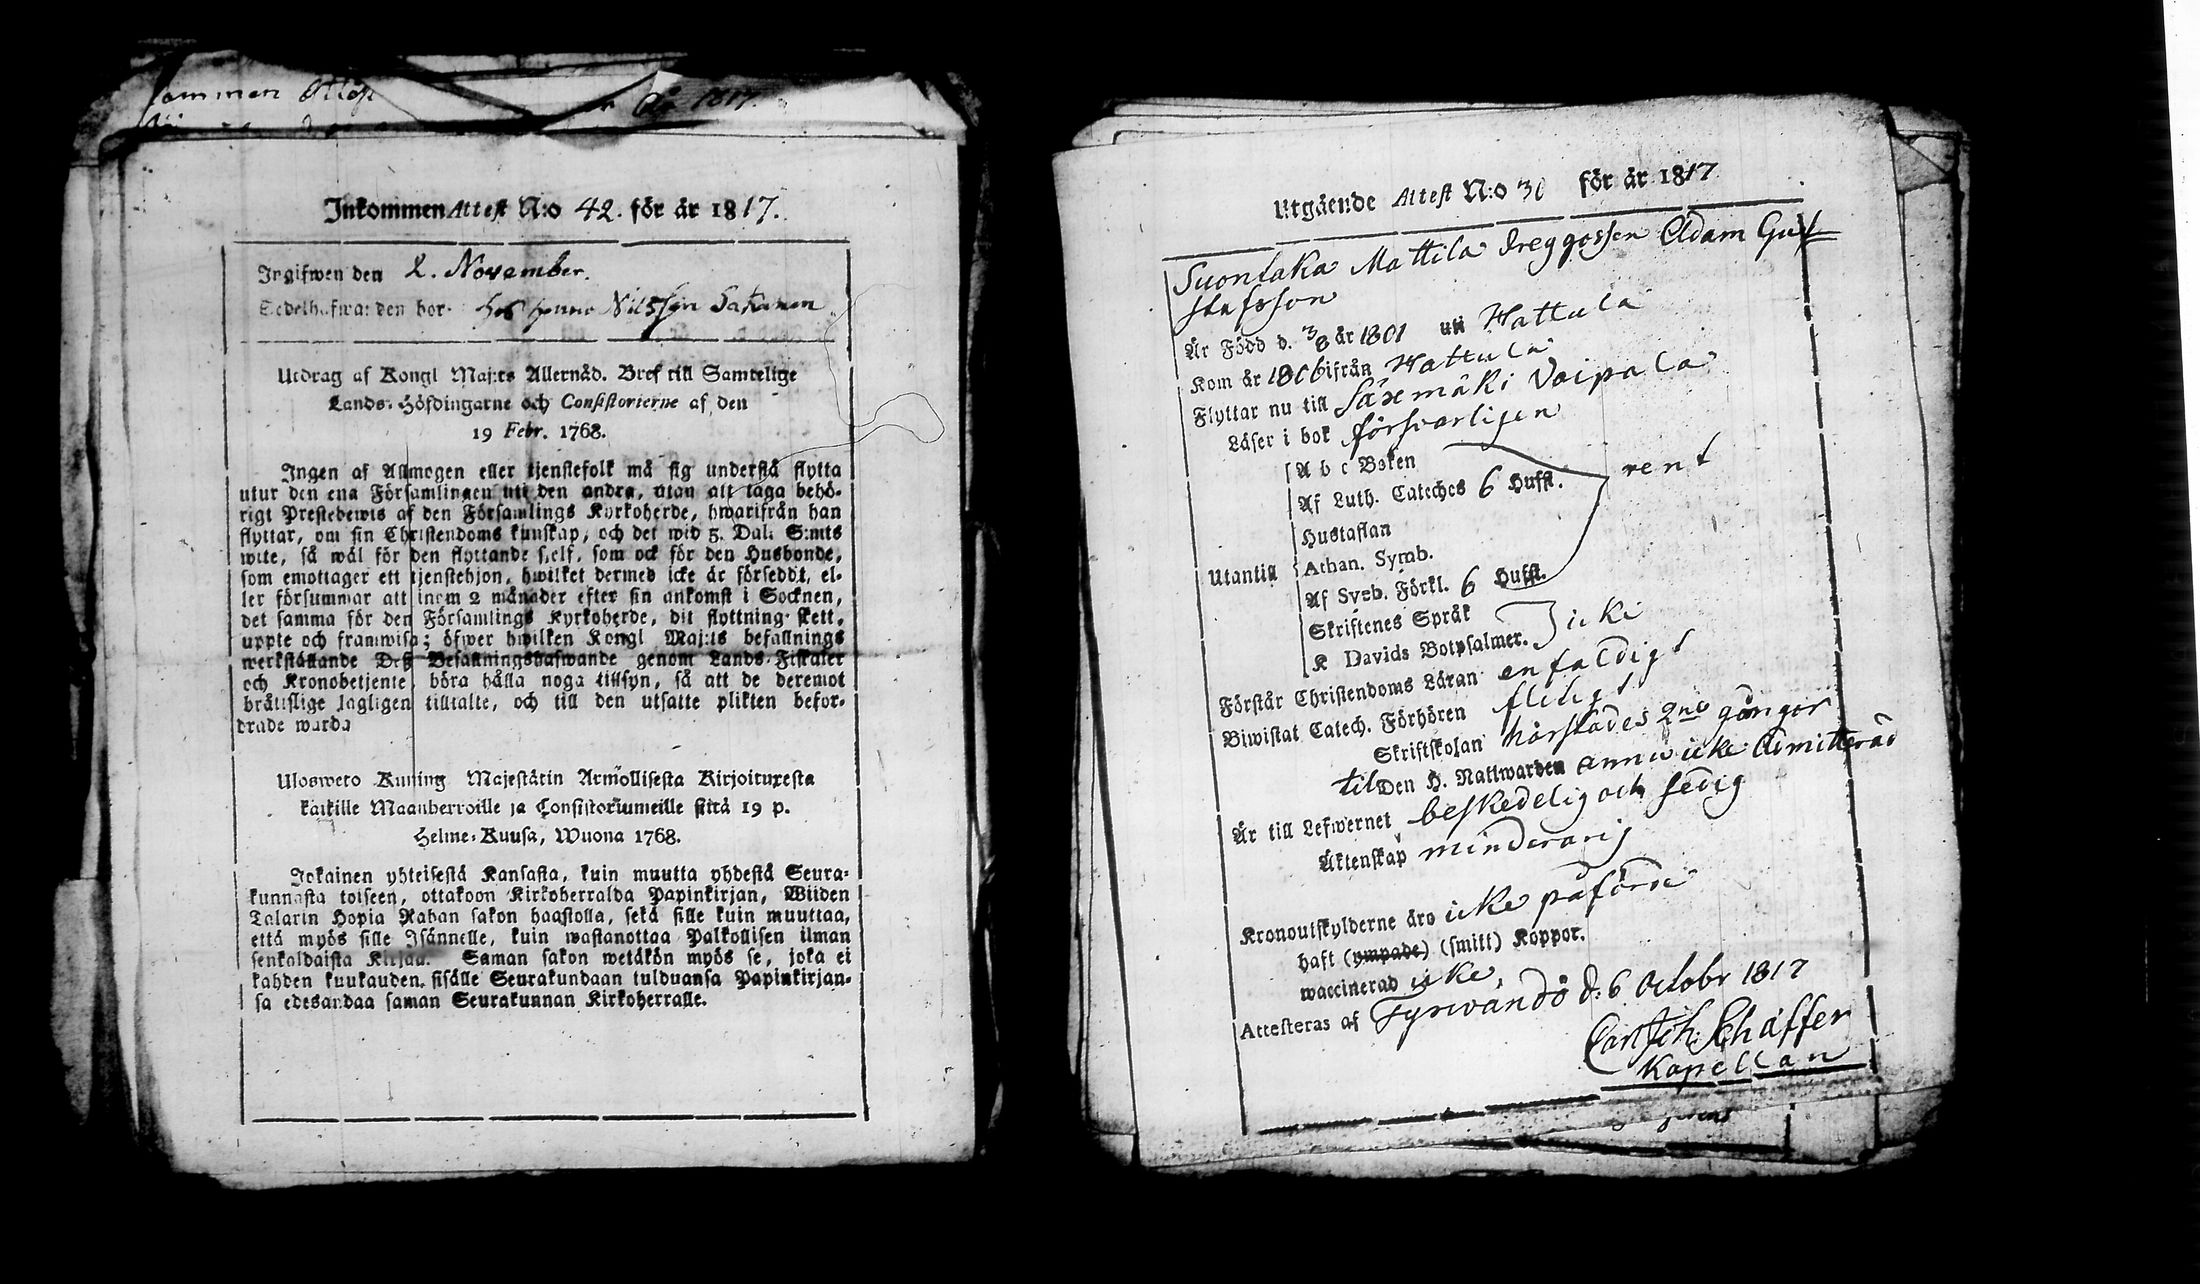 ommen Attest
1817.
Inkommen Attest N:o 42. för år 1817.
Ingifwen den 2. November.
Sedelhafwa: den bor. hos Nilsson
Utdrag af Kongl Maj:ts Allernåd. Bref till Samtelige
Lands-Höfdingarne och Consistorierne af den
19 Febr. 1768.
Ingen af Allmogen eller tjenstefolk må sig understå flytta
utur den ena Församlingen uti den andra, utan att taga behö-
rigt Prestebewis af den Församlings Kyrkoherde, hwarifrån han
flyttar, om sin Christendoms kunskap, och det wid 5. Dal. S:mts
wite, så wäl för den flyttande sjelf, som ock för den Husbonde,
som emottager ett tjenstehjon, hwilket dermed icke är försedt, el-
ler försummar att inom 2 månader efter sin ankomst i Socknen,
det samma för den Församlings Kyrkoherde, dit flyttning skett,
uppte och framwisa; öfwer hwilken Kongl Maj:ts befallnings
werkställande Deß Befallningshafwande genom Lands-Fiskaler
och Kronobetjente böra hålla noga tillsyn, så att de deremot
bråttslige lagligen tilltalte, och till den utsatte plikten befor-
drade warda
Ulosweto Kuning Majestätin Armollisesta Kirjoituxesta
kaikille Maanherroille ja Consistoriumeille siitä 19 p.
Helme-Kuusa, Wuona 1768.
Jokainen yhteisestä Kansasta, kuin muutta yhdestä Seura-
kunnasta toiseen, ottakoon Kirkoherralda Papinkirjan, Wiiden
Talarin Hopia Rahan sakon haastolla, sekä sille kuin muuttaa,
että myös sille Isännelle, kuin wastanottaa Palkollisen ilman
senkaldaista Kirjaa. Saman sakon wetäkön myös se, joka ei
kahden kuukauden sisälle Seurakundaan tulduansa Papinkirjan-
sa edesandaa saman Seurakunnan Kirkoherralle.
Utgående Attest N:o 30 för år 1817
Suontaka Mattila dreggossen Adam Gu-
stafsson
Är Född d. 3/8 år 1801 uti Hattula
Kom år 1806 ifrån Hattula
Flyttar nu till Säxmäki Voipala
Läser i bok försvarligen
A b c Boken
Af Luth. Cateches 6 Hufst. rent
Hustaflan
Utantill Athan. Symb.
Af Sveb. Förkl. 6 Hufst.
Skriftenes Språk
K Davids Botpsalmer. icke
Förstår Christendoms Läran enfaldigt
Biwistat Catech. Förhören flitigt
Skriftskolan härstädes 2ne gånger
til Den H. Nattwarden ännu icke Admitterad
Är till Lefwernet beskedelig och sedig
Äktenskap minderårig
Kronoutskylderne äro icke påförde
haft (ympade) (smitt) Koppor.
waccinerad icke.
Attesteras af Tyrwändö d: 6 Octobr 1817
Carl Joh. Schäffer
Kapellan